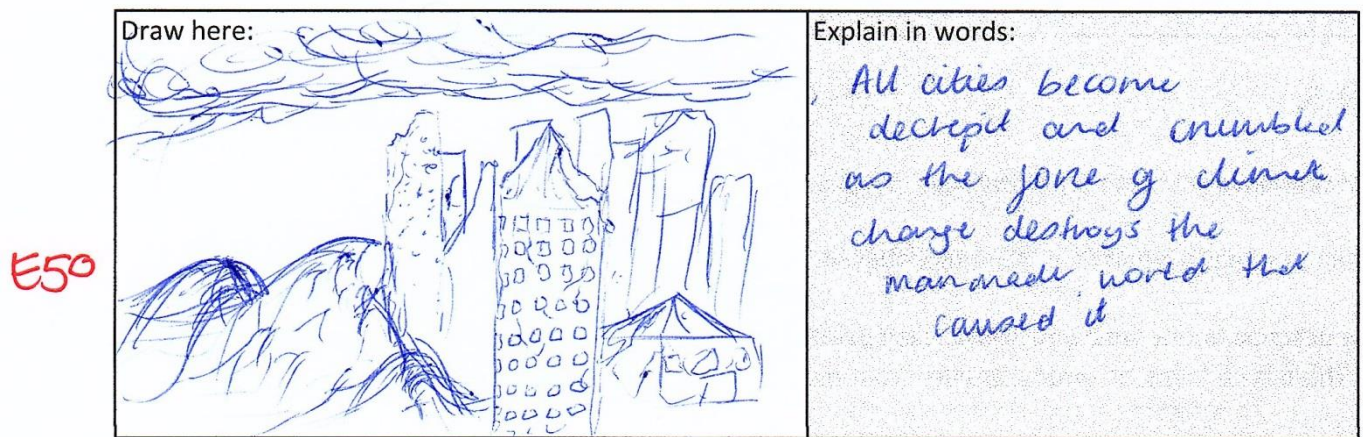 Draw here:
Explain in words:
All cities become
decrepit and crumbled
as the force of climate
change destroys the
manmade world that
caused it
E50